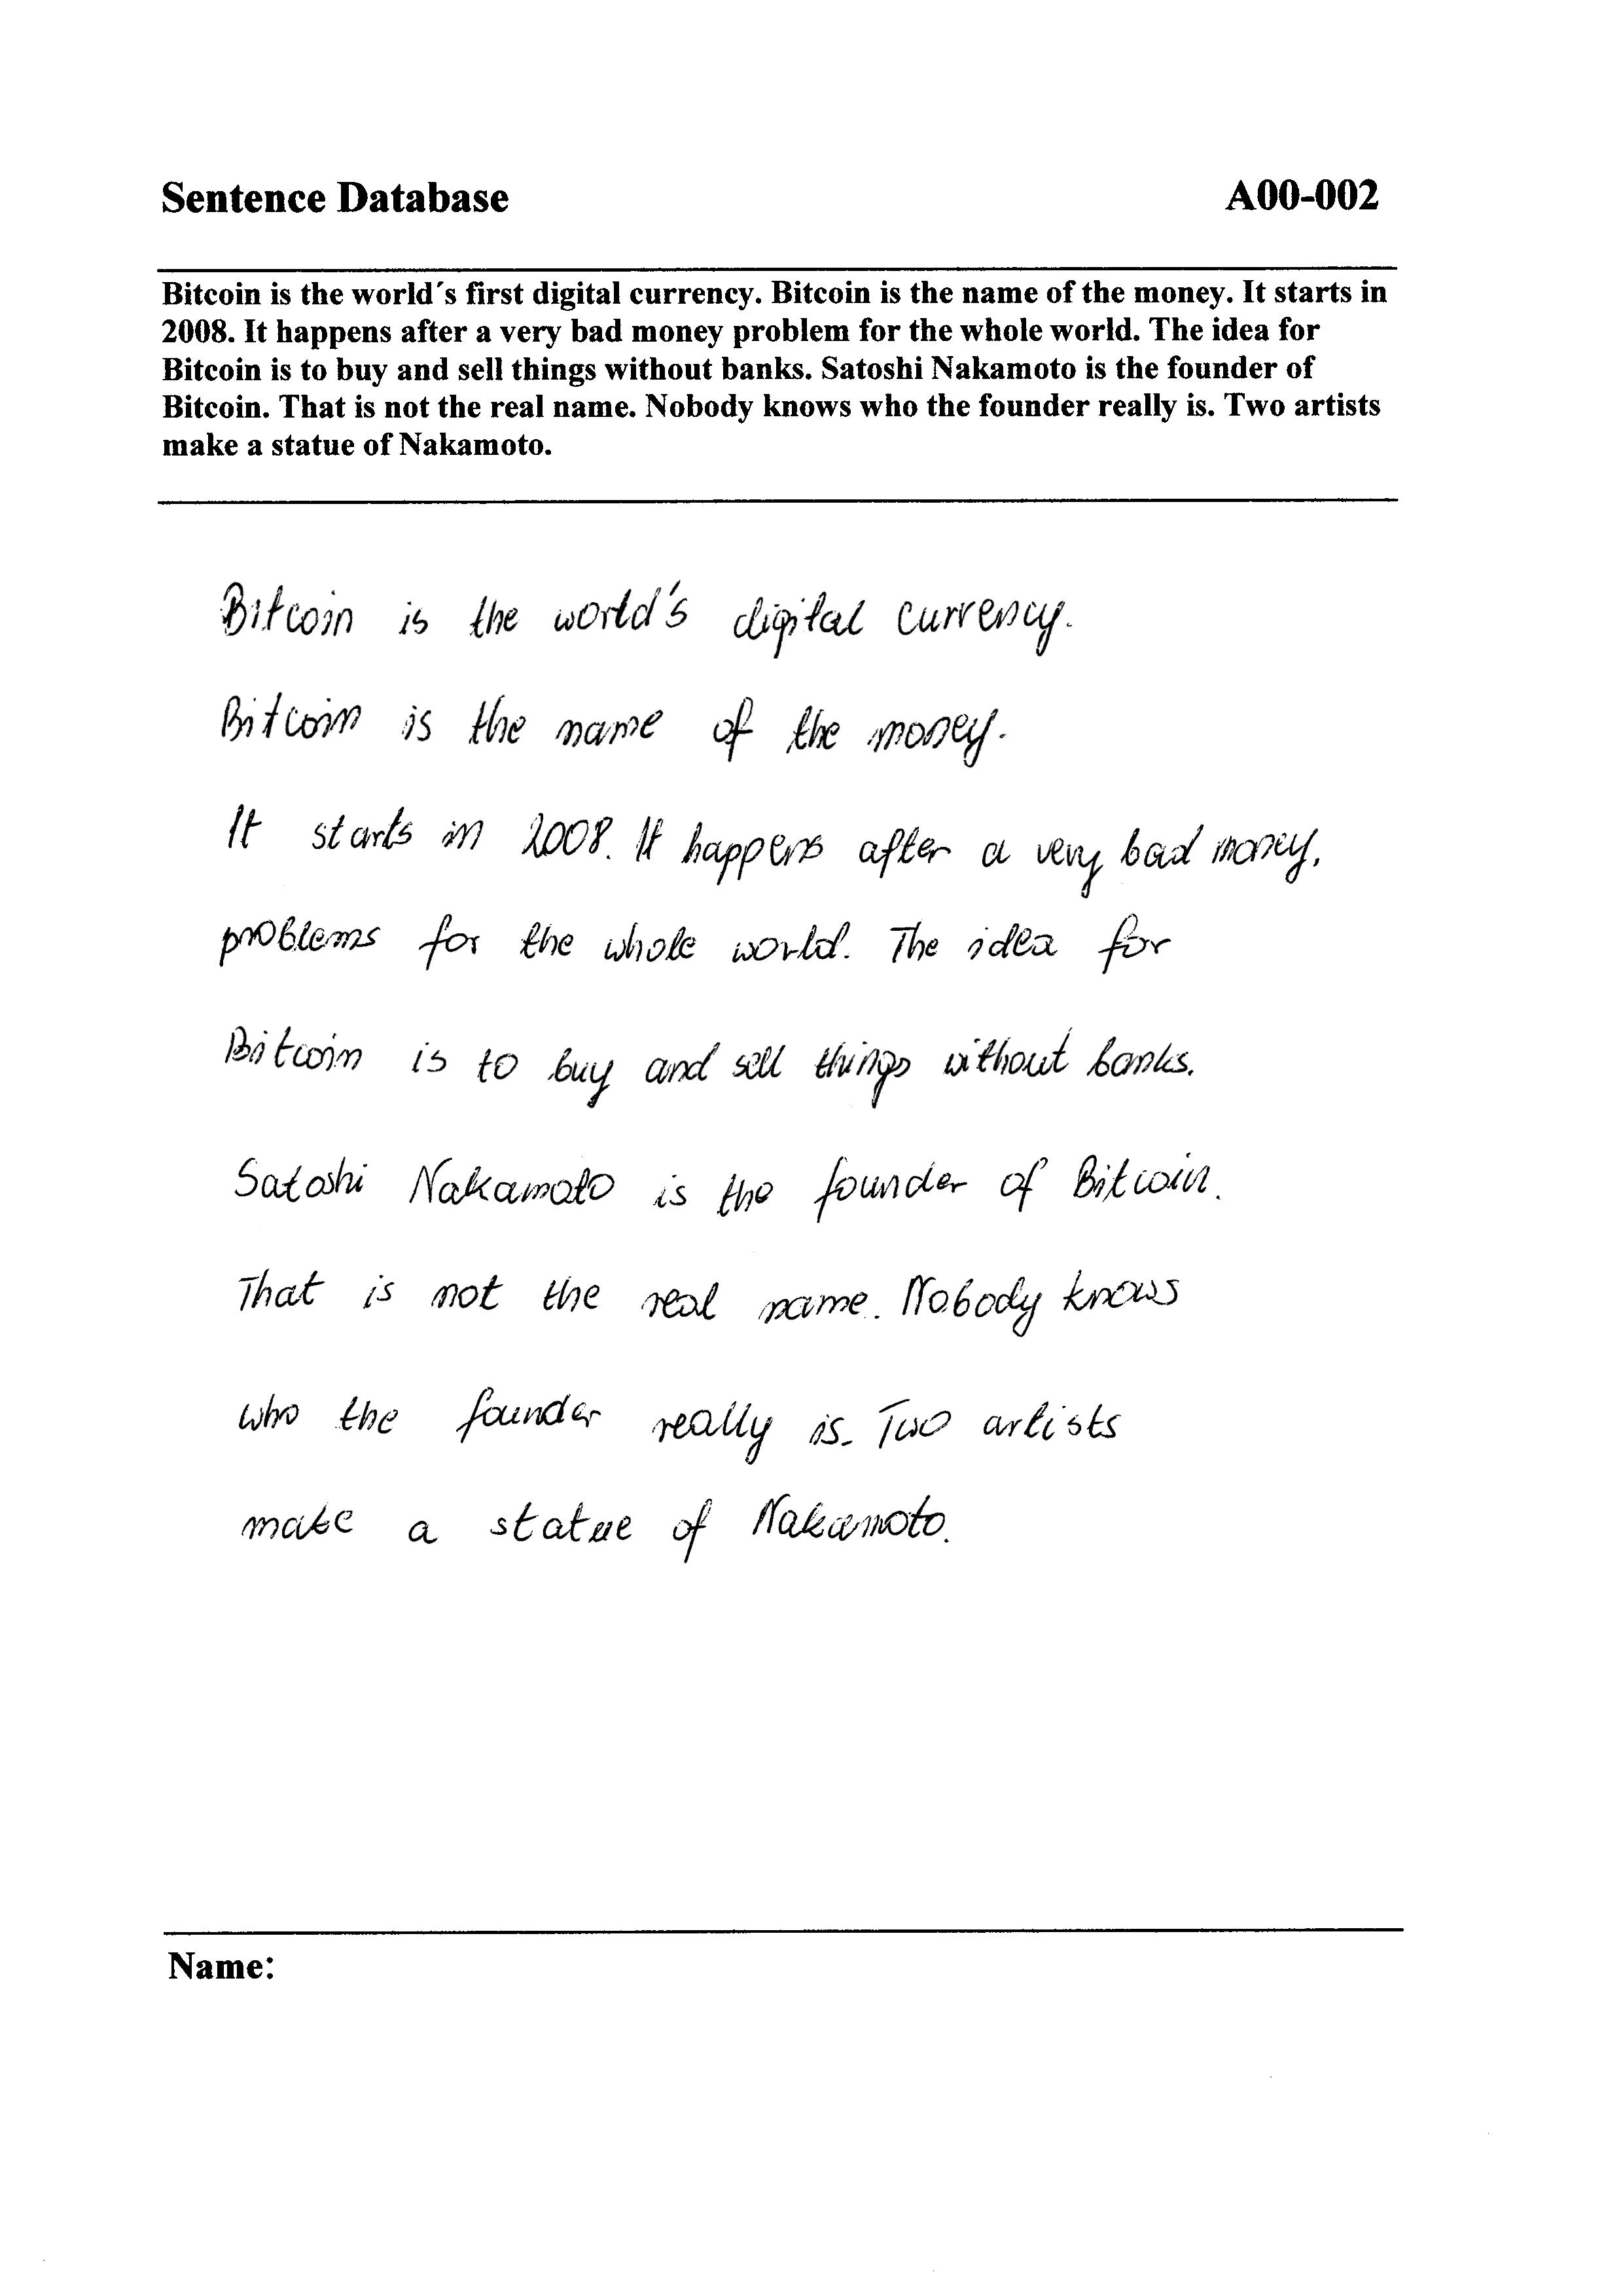 Sentence Database A00-002
Bitcoin is the world´s first digital currency. Bitcoin is the name of the money. It starts in
2008. It happens after a very bad money problem for the whole world. The idea for
Bitcoin is to buy and sell things without banks. Satoshi Nakamoto is the founder of
Bitcoin. That is not the real name. Nobody knows who the founder really is. Two artists
make a statue of Nakamoto.
Bitcoin is the world's digital currency.
Bitcoin is the name of the money.
It starts in 2008. It happens after a very bad money,
problems for the whole world. The idea for
Bitcoin is to buy and sell things without banks.
Satoshi Nakamoto is the founder of Bitcoin.
That is not the real name. Nobody knows
who the founder really is. Two artists
make a statue of Nakamoto.
Name: